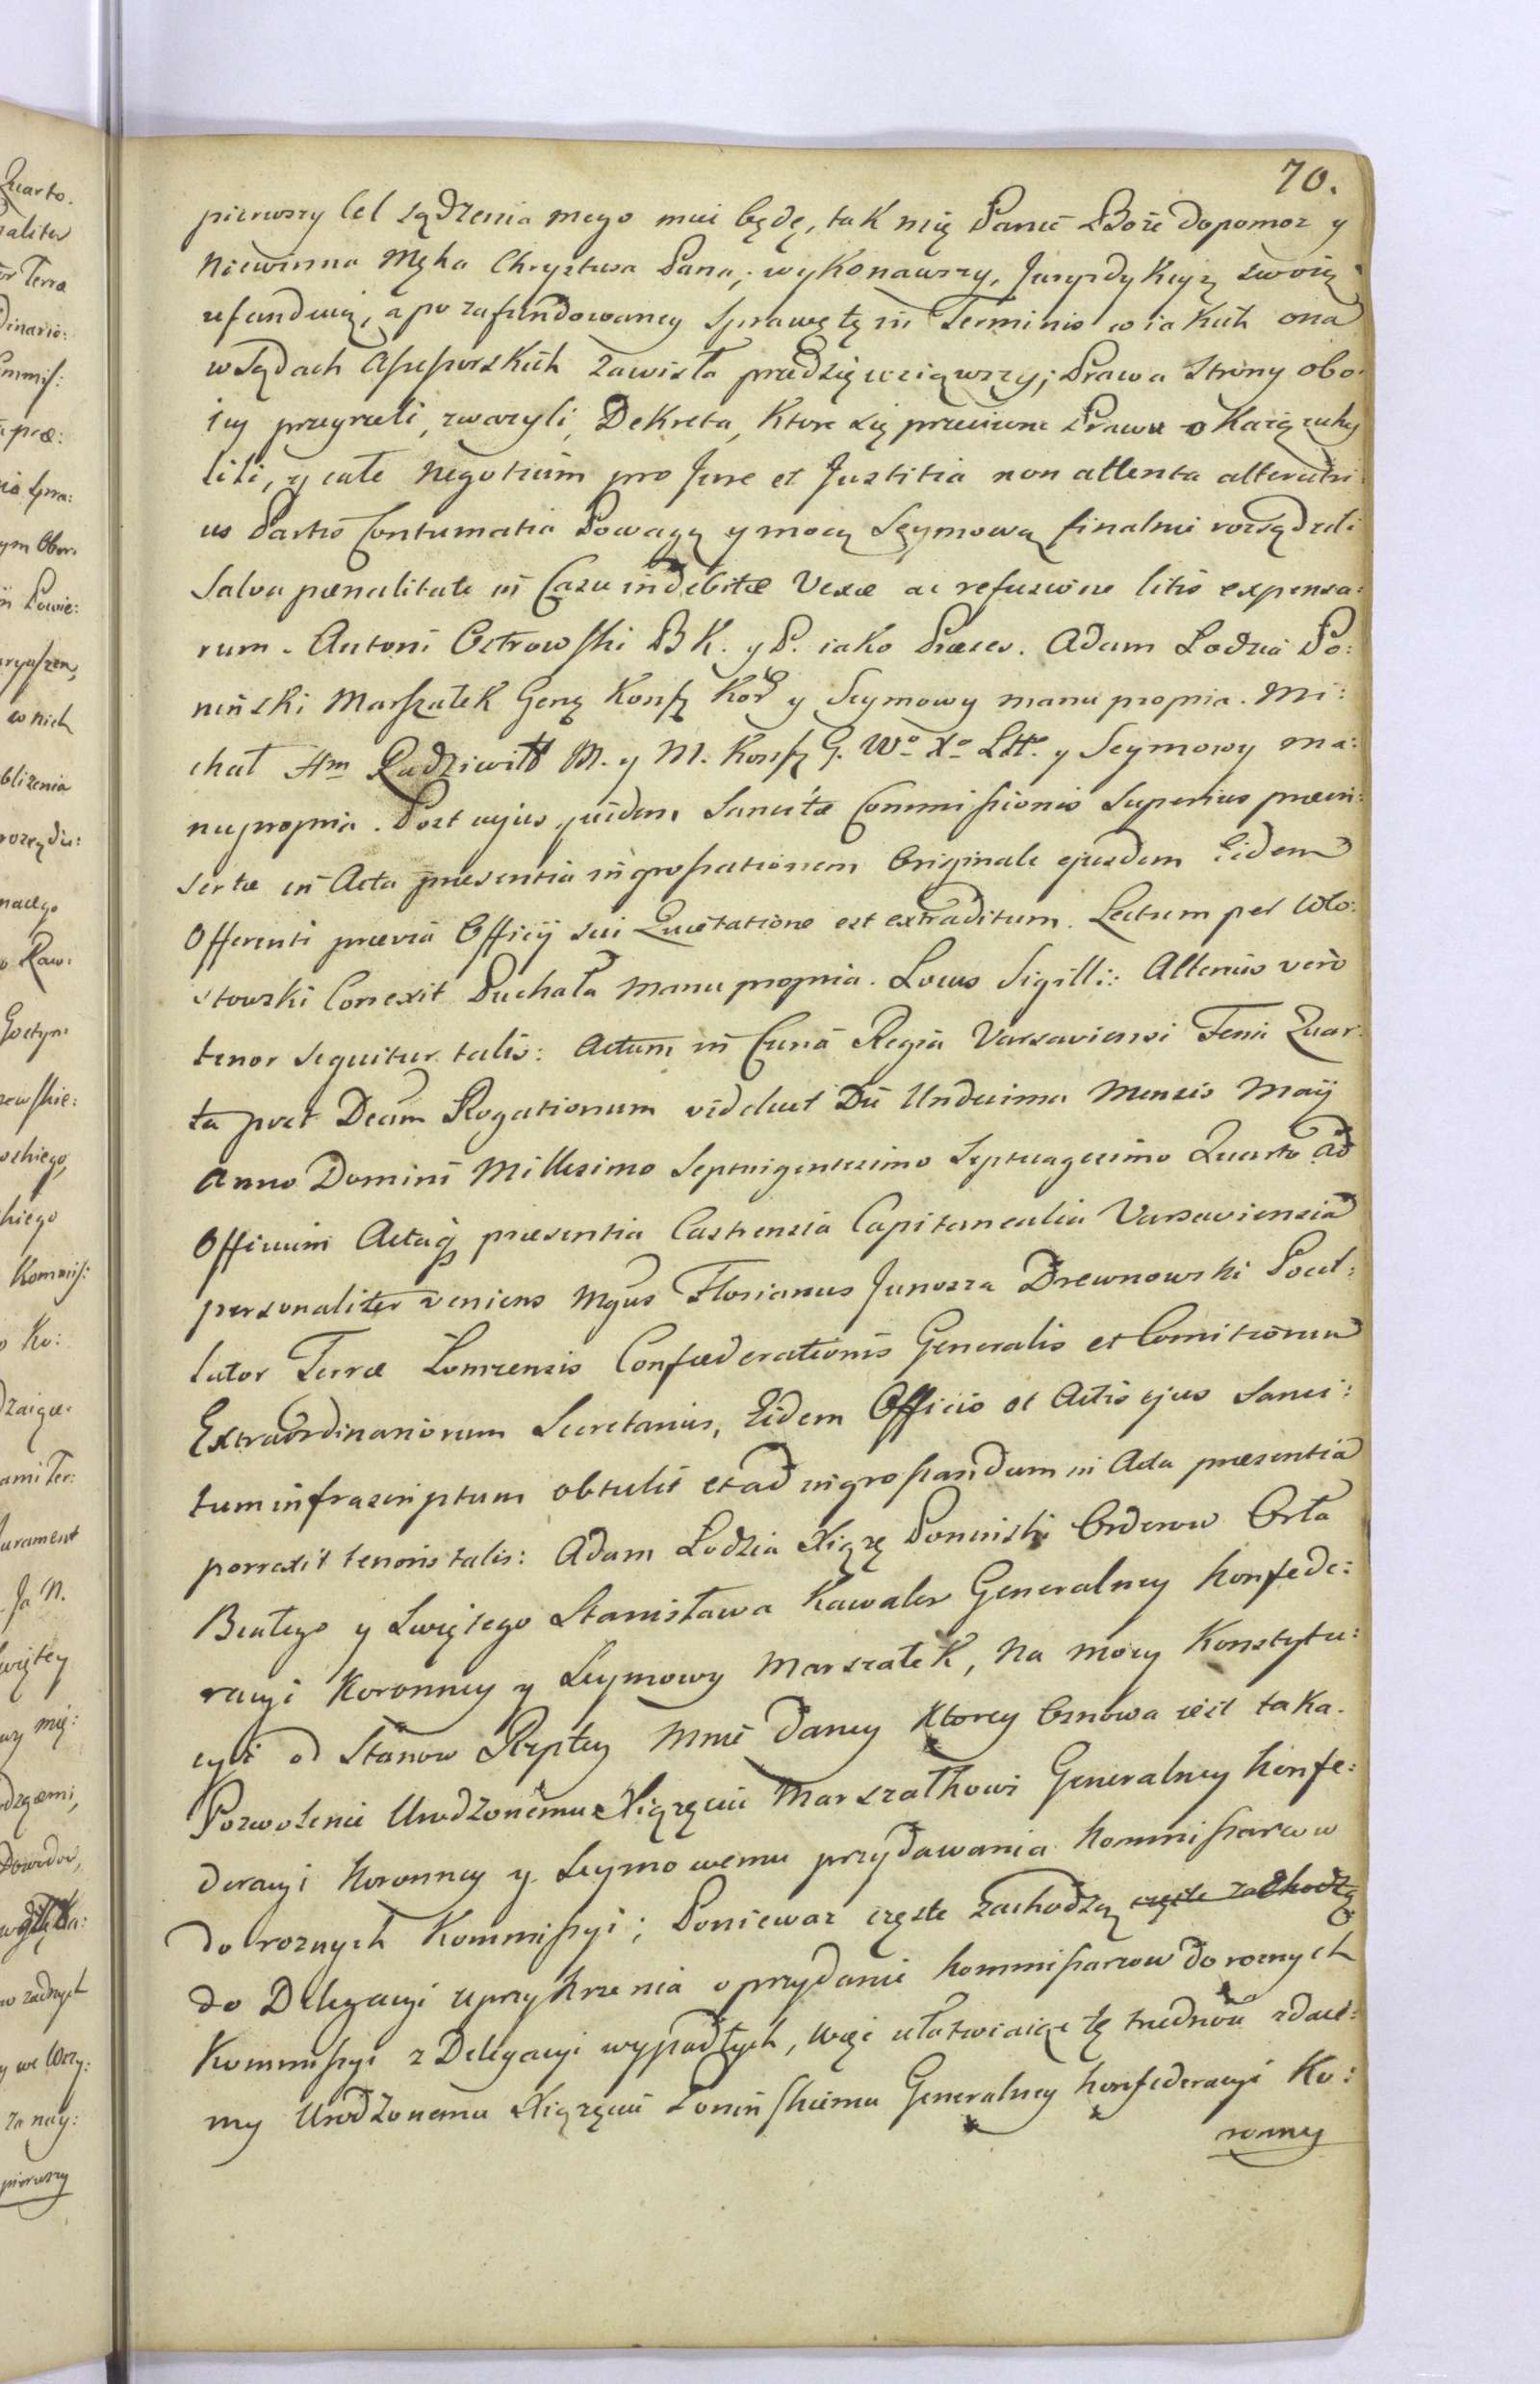 70.
pierwszy cel sądzenia mego miec będę, tak mię Panie Boże dopomoz y
Niewinna Męka Chrystusa Pana; wykonawszy, Jurysdykcyą swoią
ufunduią, a po zafundowaney Sprawę tę in Terminis w iakich ona
w Sądach Assessorskich zawisła przedsięwziąwszy; Prawa Strony obo:
iey przeyrzeli, zwazyli, Dekreta, Ktore się przeciwne Prawu okażą uchy
lili, y całe Negotium pro Jure et Justitia non attenta alterutri
us Partis Contumatia Powagą y mocą Seymową finalnie rozsądzili
Salva paenalitate in Casu indebitae Vexae ac refusione litis expensa:
rum. Antoni Ostrowski B K. y P. iako Praeses. Adam Lodzia Po:
niński Marszałek Genę Konfę Kor y Seymowy manu propria. Mi:
chał Hm Radziwiłł M. y M. Konfę G. Wo Xo Litt. y Seymowy ma:
nu propria. Post cujus quidem Sancitae Commissionis Superius praein:
sertae in Acta praesentia ingrossationem Originale ejusdem Eidem
Offerenti praevia Officij sui Quietatione est extraditum. Lectum per Wło:
stowski Correxit Puchała Manu propria. Locus Sigilli: Alterius vero
tenor sequitur talis: Actum in Curia Regia Varsaviensi Feria Quar
ta post Dcam Rogationum videlicet Die Undecima Mensis Maij
Anno Domini Millesimo Septuigentesimo Septuagesimo Quarto Ad
Officium Actaq praesentia Castrensia Capitanealia Varsaviensia
personaliter veniens Mgus Florianus Junosza Drewnowski Pocil:
lator Terrae Lomzensis Confaederationis Generalis et Comitiorum
Extraordinariorum Secretarius, Eidem Officio et Actis ejus Sanci:
tum infrascriptum obtulit et ad ingrossandum in Acta praesentia
porrexit tenoris talis: Adam Lodzia Xiąże Poninski Orderow Orła
Białego y Swiętego Stanisława Kawaler Generalney Konfede:
racyi Koronney y Seymowy Marszałek, Na mocy Konstytu:
cyi od Stanow Rzpltey Mnie daney Ktorey Osnowa iest taka.
Pozwolenie Urodzonemu Xiążęciu Marszałkowi Generalney Konfe:
deracyi Koronney y Seymowemu przydawania Kommissarzow
do roznych Kommissyi; Poniewaz częste zachodzą częste zachodzą
do Delegacyi uprzykrzenia o przydanie Kommissarzow do roznych
Kommissyi z Delegacyi wypadłych, więc ułatwiaiąc tę trudnosc zdaie:
my Urodzonemu Xiążęciu Ponińskiemu Generalney Konfederacyi Ko:
ronney